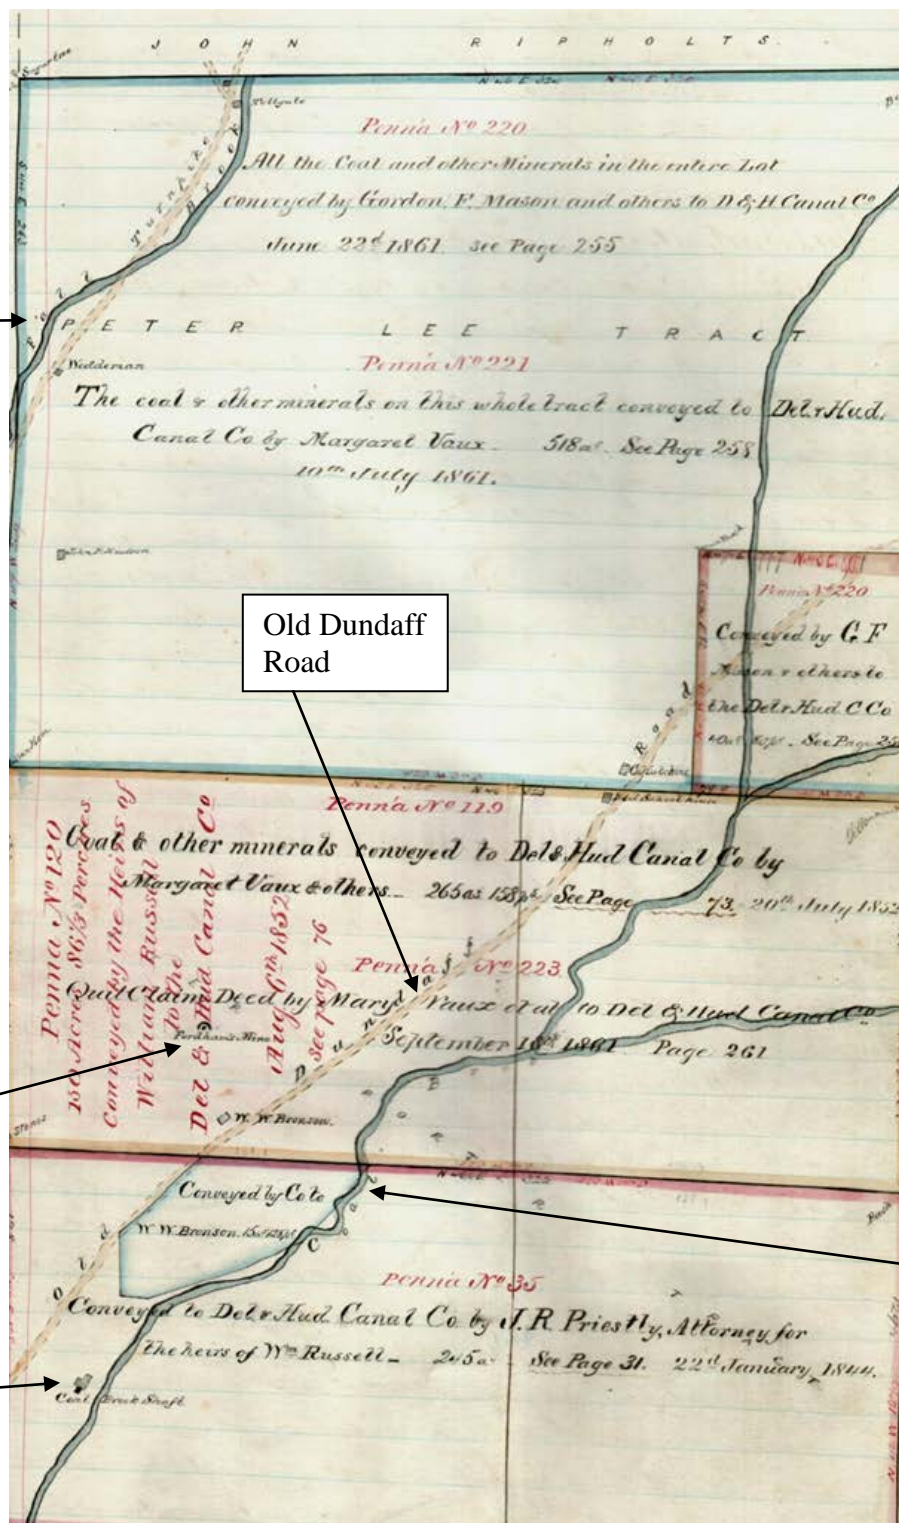 JOHN RIPHOLTS.
Tollgate
Turnpike
Brook
Fall
Penn'a No 220
All the Coal and other Minerals in the entire Lot
conveyed by Gordon F. Mason and others to D & H Canal Co
June 22d 1861. see Page 255
PETER LEE TRACT
Wedeman
Penn'a No 221
The coal & other minerals on this whole tract conveyed to Del & Hud.
Canal Co by Margaret Vaux - 518as. See Page 258
10th July 1861.
Penn'a No 220
Conveyed by G F
Mason & others to
the Del & Hud C Co
See Page
Old Dundaff
Road
Road
Penn'a No 119
Coal & other minerals conveyed to Del & Hud Canal Co by
Margaret Vaux & others - 265as 158ps See Page 73. 20th July 1852
Penna No 120
Acres 86 1/3 Perches
Conveyed by the Heirs of
William Russel
to the
Del & Hud Canal Co
Aug 6th 1852
see page 76
Penn'a No 223
Quit Claim Deed by Mary Vaux et al to Del & Hud Canal Co
September 1861. Page 261
Dundaff
Ferdham's Mine
W. W. Bronson.
Stones
Conveyed by Co to
W. W. Bronson.
Old
Penn'a No 35
Conveyed to Del & Hud Canal Co by J. R. Priestly, Attorney for
the heirs of Wm Russell - 245a See Page 31. 22d January, 1844.
Coal Brook Shaft